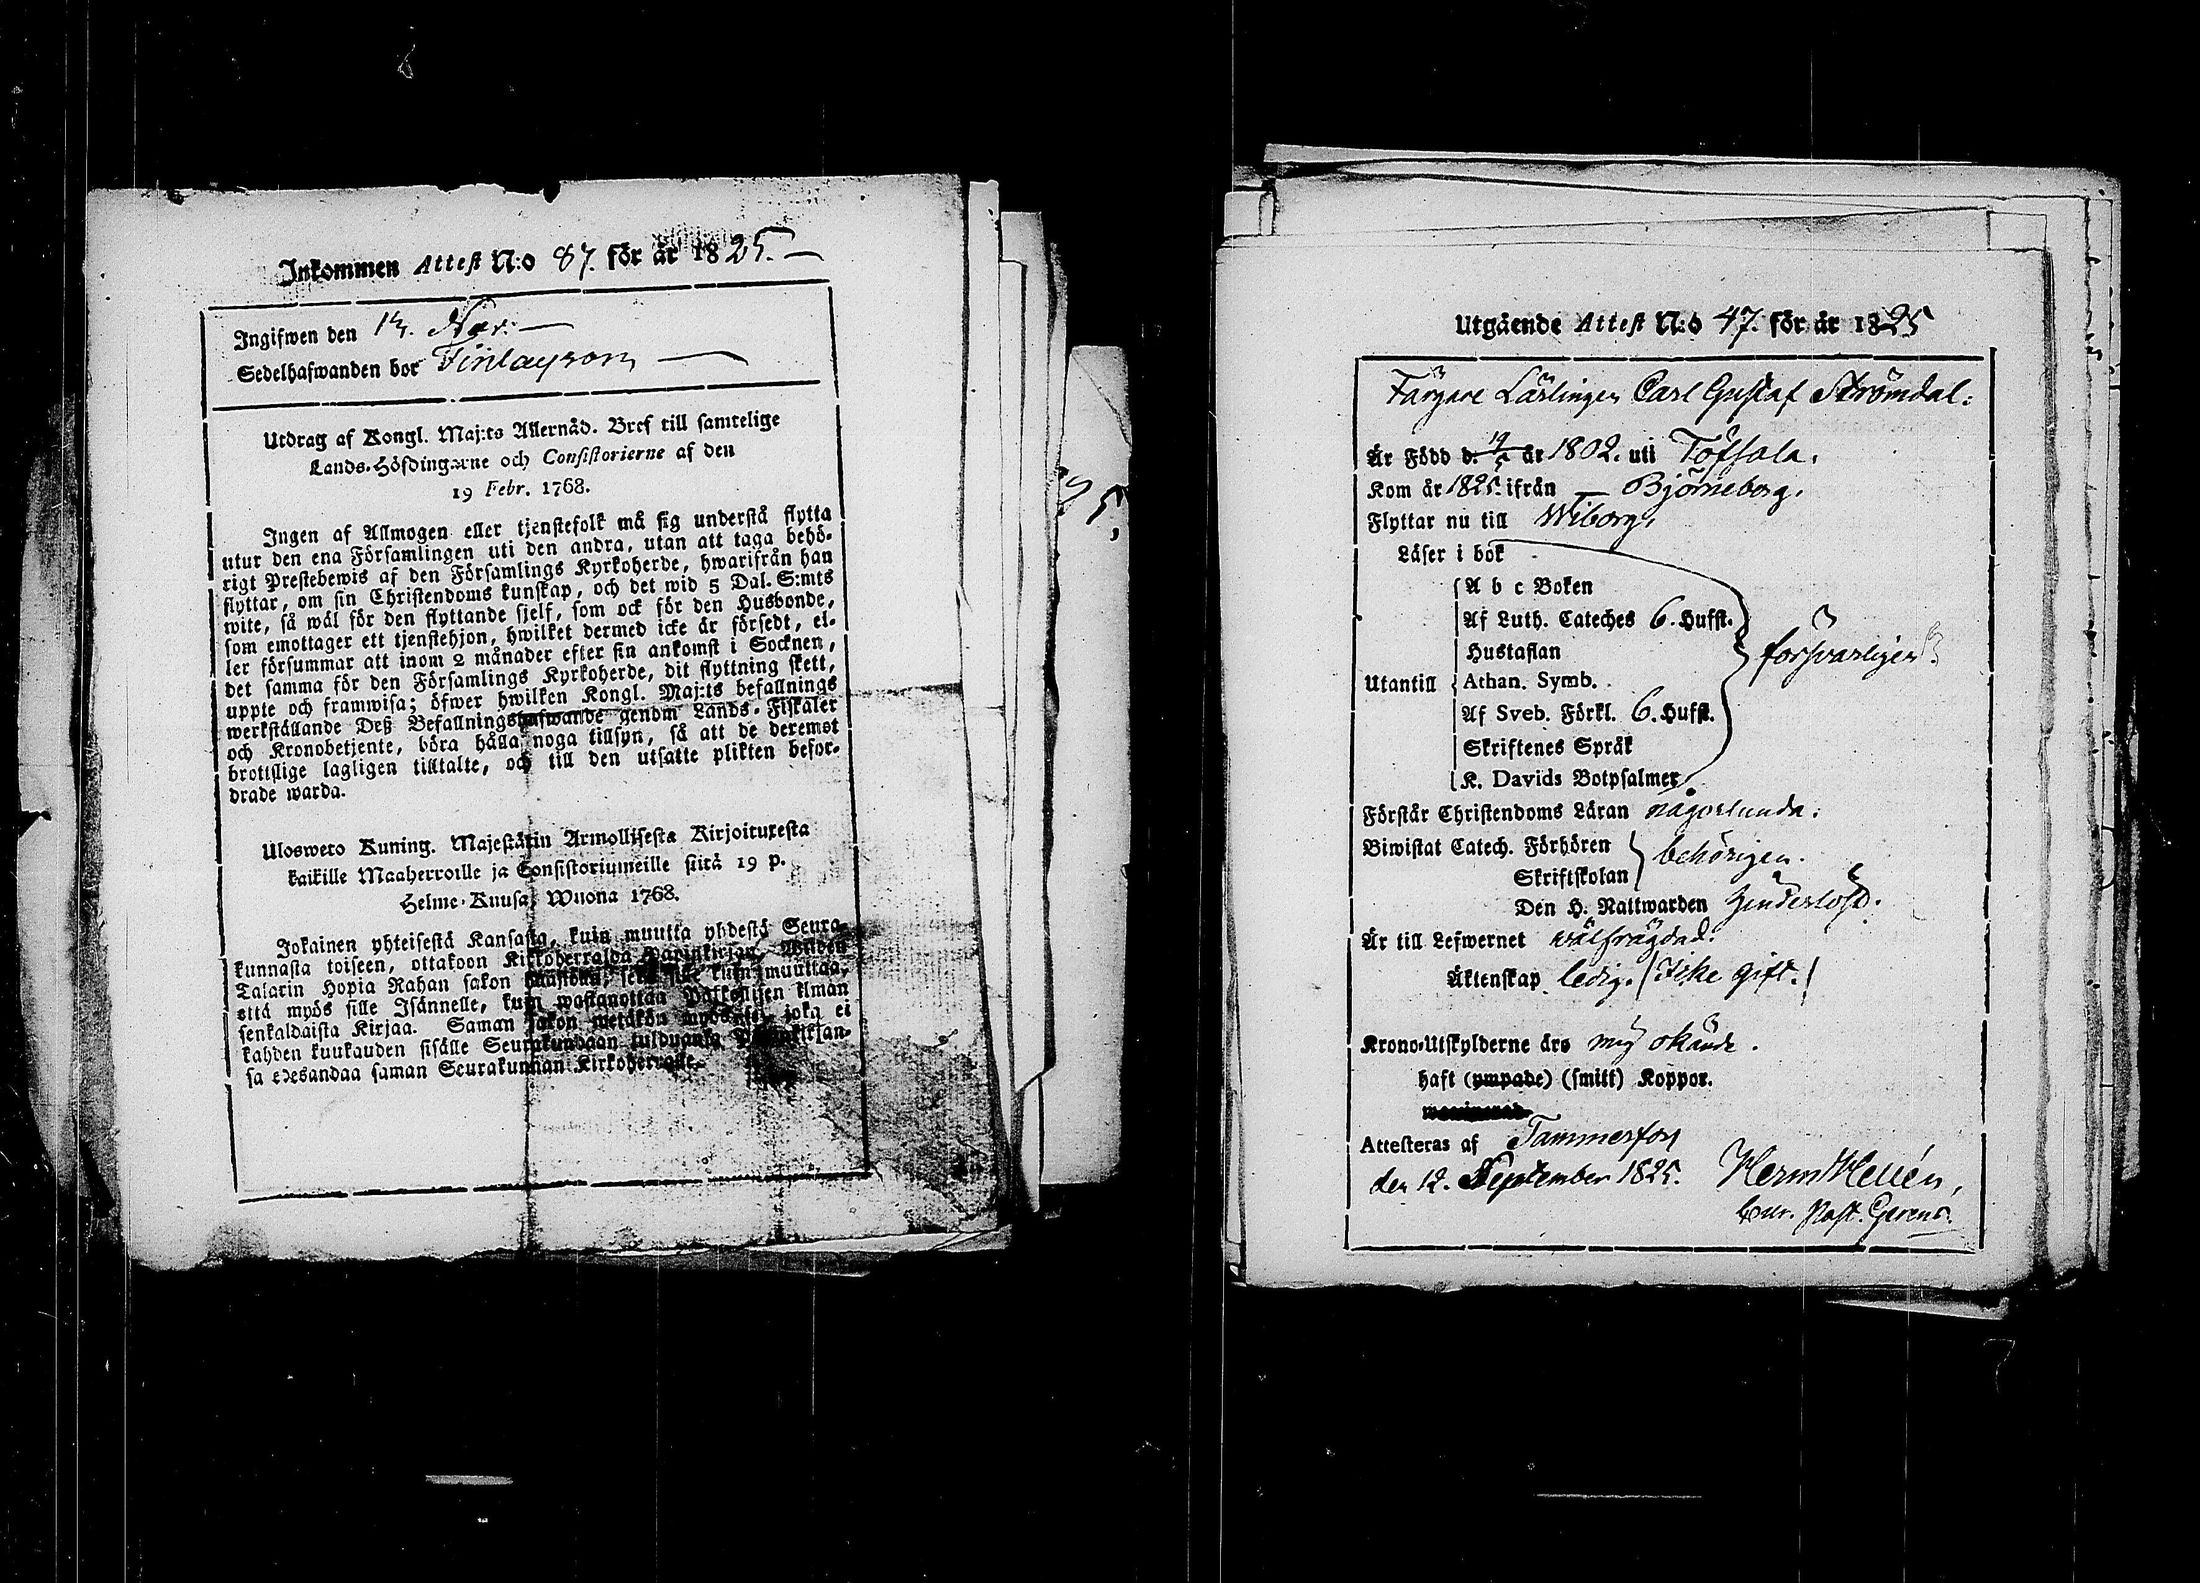 Inkommen Attest N:o 87. för år 1825. —
Ingifwen den 13. Nov. —
Sedelhafwanden bor Finlayson —
Utdrag af Kongl. Maj:ts Allernåd. Bref till samtelige
Lands-Höfdingarne och Consistorierne af den
19 Febr. 1768.
Ingen af Allmogen eller tjenstefolk må sig understå flytta
utur den ena Församlingen uti den andra, utan att taga behö-
rigt Prestebewis af den Församlings Kyrkoherde, hwarifrån han
flyttar, om sin Christendoms kunskap, och det wid 5 Dal. S:mts
wite, så wäl för den flyttande sjelf, som ock för den Husbonde,
som emottager ett tjenstehjon, hwilket dermed icke är försedt, el-
ler försummar att inom 2 månader efter sin ankomst i Socknen,
det samma för den Församlings Kyrkoherde, dit flyttning skett,
uppte och framwisa; öfwer hwilken Kongl. Maj:ts befallnings
werkställande Deß Befallningshafwande genom Lands-Fiskaler
och Kronobetjente, böra hålla noga tillsyn, så att de deremot
brottslige lagligen tilltalte, och till den utsatte plikten befor-
drade warda.
Ulosweto Kuning. Majestätin Armollisesta Kirjoituxesta
kaikille Maaherroille ja Consistoriumeille siitä 19 p.
Helme-Kuusa, Wuona 1768.
Jokainen yhteisestä Kansasta, kuin muutta yhdestä Seura-
kunnasta toiseen, ottakoon Kirkoherralda Papinkirjan, Wiiden
Talarin Hopia Rahan sakon haastolla, sekä sille kuin muuttaa,
että myös sille Isännelle, kuin wastanottaa Palkollisen ilman
senkaldaista Kirjaa. Saman sakon wetäkön myös se, joka ei
kahden kuukauden sisälle Seurakundaan tulduansa Papinkirjan-
sa edesandaa saman Seurakunnan Kirkoherralle.
Utgående Attest N:o 47. för år 1825
Färgare Lärlingen Carl Gustaf Strömdal:
Är Född d. 19/5 år 1802. uti Töfsala.
Kom år 1825. ifrån — Björneborg.
Flyttar nu till Wiborg.
Läser i bok
A b c Boken
Af Luth. Cateches 6. Hufst.
Hustaflan
försvarligen
Utantill Athan. Symb.
Af Sveb. Förkl. 6. Hufst.
Skriftenes Språk
K. Davids Botpsalmer
Förstår Christendoms Läran någorlunda.
Biwistat Catech. Förhören
behörigen.
Skriftskolan
Den H. Nattwarden
Är till Lefwernet wälfrägdad.
Äktenskap ledig. (Icke gift.)
Krono-Utskylderne äro mig okände.
haft (ympade) (smitt) Koppor.
Attesteras af Tammerfors
den 12. September 1825. Herm Hellén,
Cur. Past. Gerens.